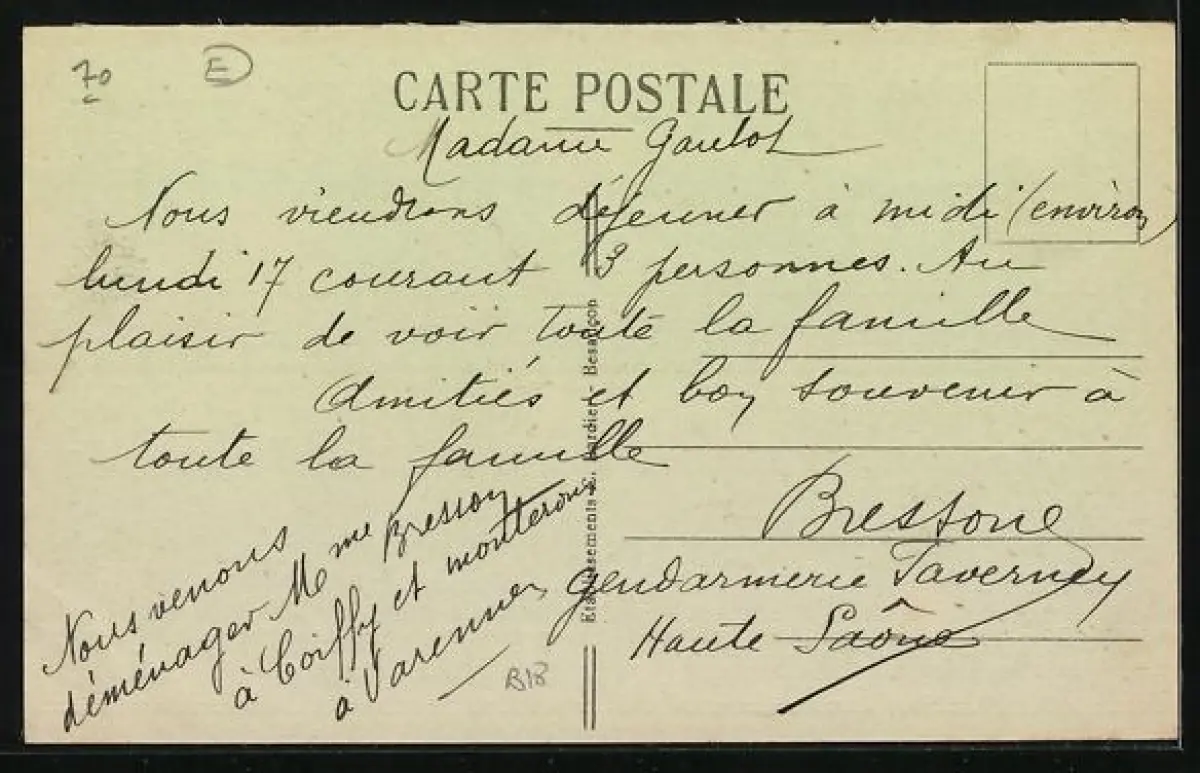 70 E
CARTE POSTALE
Madame Gaulot
Nous viendrons déjeuner à midi (environ)
lundi 17 courant 3 personnes. Au
plaisir de voir toute la famille
Amitiés et bon souvenir à
toute la famille
Bressone
gendarmerie Faverney
Haute Saône
Nous venons
déménager Mme Bresson
à Coiffy et monterons
à Varennes
B18
Etablissements C. Lardier - Besançon